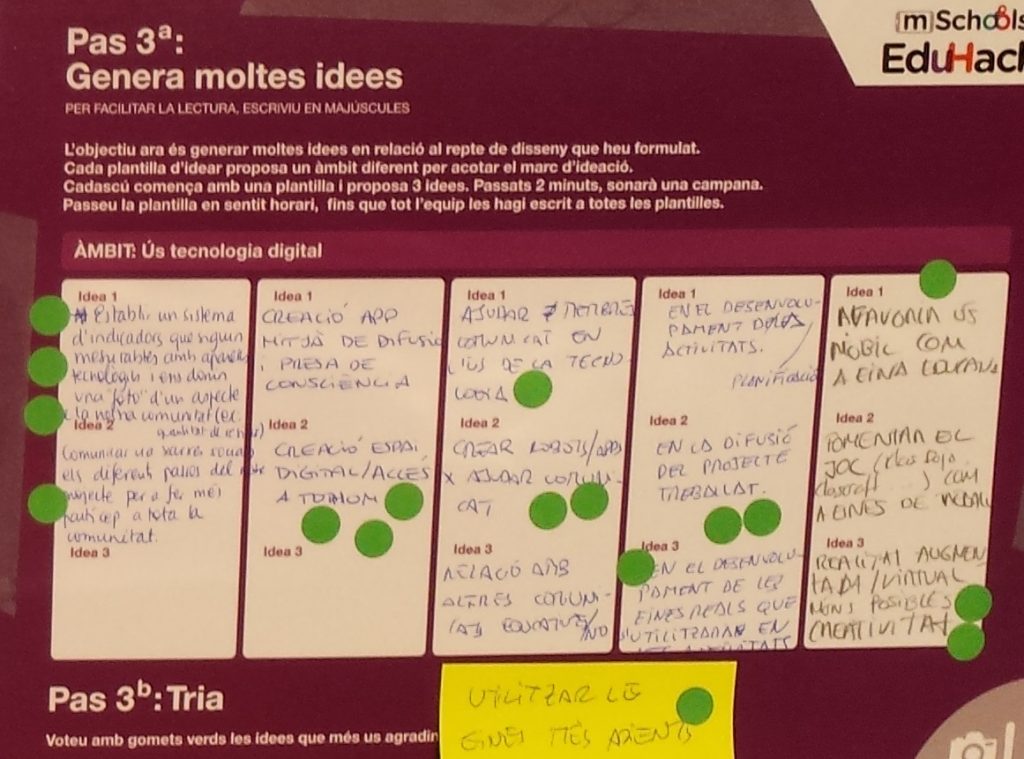 Pas 3ª:
Genera moltes idees
PER FACILITAR LA LECTURA, ESCRIVIU EN MAJÚSCULES
[m]Schools
EduHack
L'objectiu ara és generar moltes idees en relació al repte de disseny que heu formulat.
Cada plantilla d'idear proposa un àmbit diferent per acotar el marc d'ideació.
Cadascú comença amb una plantilla i proposa 3 idees. Passats 2 minuts, sonarà una campana.
Passeu la plantilla en sentit horari, fins que tot l'equip les hagi escrit a totes les plantilles.
ÀMBIT: Ús tecnologia digital
Idea 1
Establir un sistema
d'indicadors que siguin
mesurables amb
i ens donin
una "foto" d'un aspecte
la nostra comunitat (ex.
Idea 2
quantitat de
Comunicar via xarxes
els diferent passos del
projecte per a fer més
particep a tota la
comunitat.
Idea 3
Idea 1
CREACIÓ APP
MITJÀ DE DIFUSIÓ
i PRESA DE
CONSCIÈNCIA
Idea 2
CREACIÓ ESPAI
DIGITAL/ACCÉS
A TOTHOM
Idea 3
Idea 1
AJUDAR ≠ MEMBRES
COMUNITAT EN
L'ÚS DE LA TECNO-
LOGIA
Idea 2
CREAR ROBOTS/APPS
X AJUDAR COMUNI-
TAT
Idea 3
RELACIÓ AMB
ALTRES COMUNI-
TATS EDUCATIVES/NO
Idea 1
EN EL DESENVOLU-
PAMENT DE LES
ACTIVITATS.
PLANIFICACIÓ
Idea 2
EN LA DIFUSIÓ
DEL PROJECTE
TREBALLAT.
Idea 3
EN EL DESENVOLU-
PAMENT DE LES
EINES REALS QUE
S'UTILITZARAN EN
LES ACTIVITATS
Idea 1
AFAVORIR ÚS
MÒBIL COM
A EINA
Idea 2
FOMENTAR EL
JOC
COM
A EINES DE
Idea 3
REALITAT AUGMEN
TADA/VIRTUAL
MONS POSIBLES
CREATIVITAT
Pas 3b: Tria
Voteu amb gomets verds les idees que més us agradin
UTILITZAR LES
EINES MÉS ADIENTS